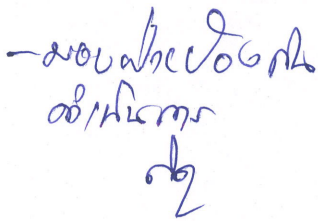 - มอบฝ่ายป้องกัน
ดำเนินการ